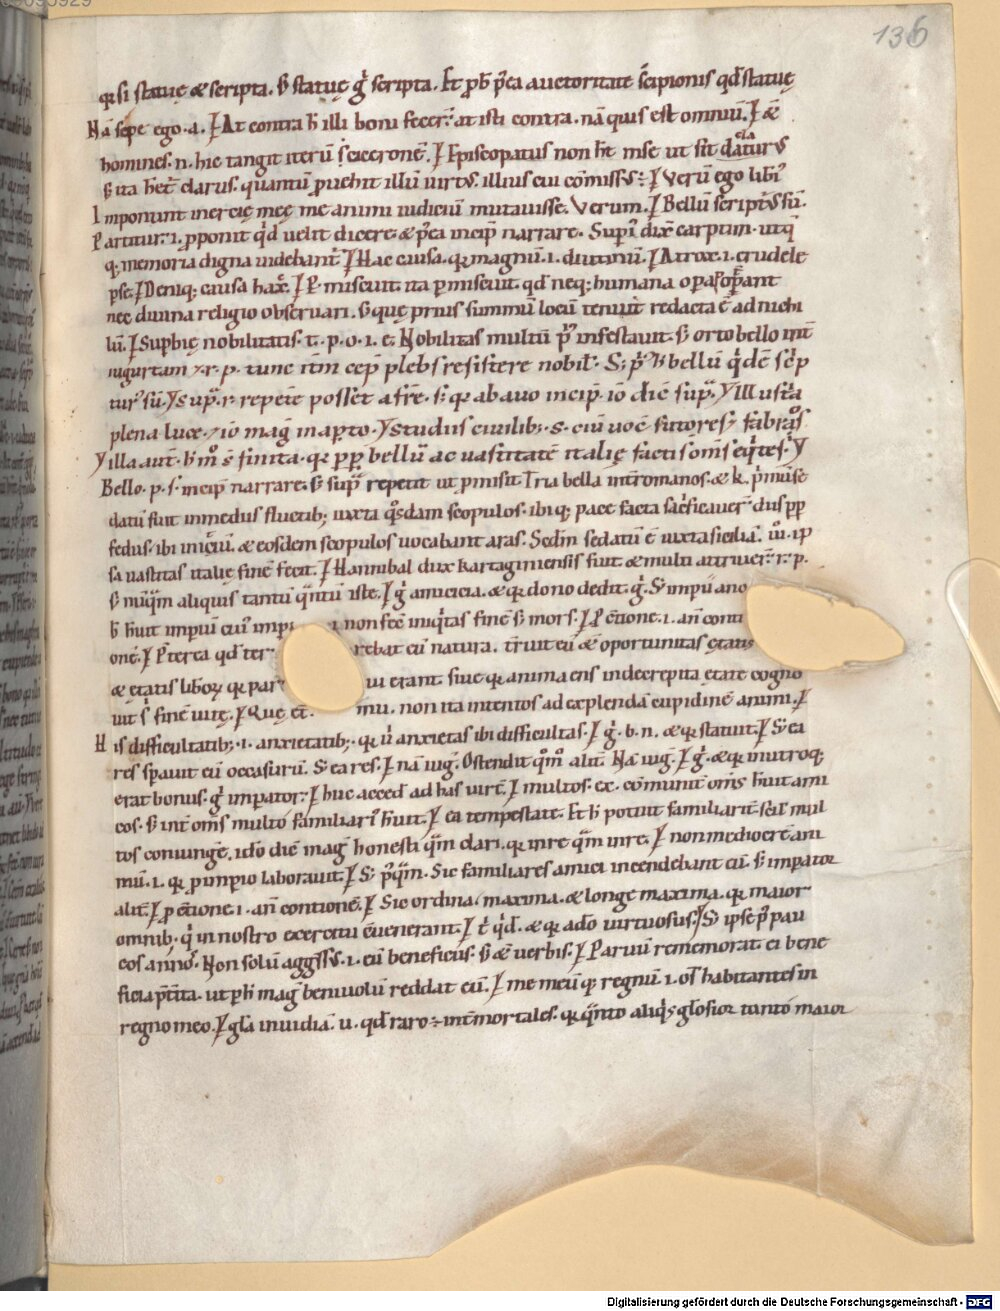 136
qͣsi statuę & scripta. s; statuę gͥ scripta. Et ꝓb̄ p̄ea auctoritate scipionis qd̄ statuę
Nā sepe ego. a. I At contra h̄ illi boni fecer̄ at isti contra. nā quis est omniū. I &
homines. n. hic tangit iterū ciceronē. I Episcopatus non h̄t in se ut sit daturus
s; ita h̄et clarus. quantū ꝓuehit illū uirtus. illius cui cōmissus÷ I Verū ego lib̄i
Imponunt inercię meę me animi iudiciū mutauisse. Verum. I Bellū scripturus sū.
Partitur. i. ꝓponit qd̄ uelit dicere & p̄ea incip̄ narrare. Supͣ dixͭ carptim. ut q̄
q; memoria digna uidebant̄ I Hac causa. qͣ magnū. i. diutinū. I Atrox. i. crudele
pse. I Deniq; causa hæc. I P. miscuit ita ꝑmiscuit qd̄ neq; humana
nec diuina religio obseruari. s; quę prius summū locū tenuit redacta ē ad nichi
lū. I Supbię nobilitatis. t. p. o. i. e. Nobilitas multū infestauit. s; orto bello int̄
iugurtam & r. p. tunc itm̄ cep̄ plebs resistere nobil. bellū qͥdē sc̄p
tur sū. Y repetere posset a fre. s; qͣ ab auo incip̄. iō dic̄ Y Illustra
plena luce. iō mag in apto. Y Studiis ciuilib;. s. ciū uocē sutores fabros
Y illa aut̄. finita. qͣ ꝓp bellū ac uastitatē italię facti oms̄ eqͥtes. Y
Bello. p. s. incip̄ narrare. s; supͣ repetit ut ꝓmisit Tria bella int̄ romanos. & k. p̄mū se
datū fuit in mediis fluctib; iuxta qͦsdam scopulos. ibi q; pace facta sacͥficauer̄ dus ꝓp
fedus. ibi & eosdem scopulos uocabant aras. Sedm̄ sedatū ē iuxta siciliā. ip
sa uastitas italię finē fecit. I Hannibal dux kartaginensis fuit & multū attriuer̄ r. p.
s; nūqͣm aliquis tantū qͣntū iste. I gͥ amicicia. & qͣ dono dedit. gͥ. S; impii ano
h̄ h̄uit impiū cuī imp non fec̄ iniqͥtas finē s; mors. I P ētione. i. an̄ conti
onē. I P̄terea qd̄ ter rebat eū natura. t̄ruit eū & oportunitas ętatis
& ętatis liboꝝ qͣ par ui erant. siue qͣ anima eius in decrepita ętate cogno
uit s; finē uitę. I Quę ēt. mu. non ita intentos ad explendā cupidinē animi. I
His difficultatib;. i. anxietatib;. qͣ ū anxietas ibi difficultas. I gͥ. b. n. & qͣ statuit. I S; ea
res spauit eū occasurū. S; ea res. I nā iug. Ostendit qm̄ alit̄. Nā iug. I gͥ. & qͣ in utroq;
erat bonus. gͥ imꝑator. I huc acced̄ ad has uirt̄. I multos. ex. cōmunit̄ oms̄ h̄uit ami
cos. s; int̄ oms̄ multo familiari h̄uit. I ea tempestate. Et h̄ potuit familiarit̄ se mul
tos coniungē. ido dic̄ mag honesti qͣm clari. qͣ in re qͣm in re. I non mediocrē ani
mū. i. qͣ ꝓ impio laborauit. I S; p̄qͣm. Sic familiares amici incendebant eū. s; imꝑator
alit̄. I ꝓ ētione. i. an̄ contionē. I Sic ordina. maxima. & longe maxima. qͣ maior
omnib; qͥ in nostro exercitu euenerant. I tͥ qd̄. & qͣ ado uirtuosus. I S; ipse p̄ pau
cos annos. Non solū aggssus. i. eū beneficiis. s; & uerbis. I Paruū rememorat ei bene
ficia p̄tita. ut ꝑ h̄ mag beniuolū reddat eū. I me meū qͣ regnū. i. os̄ habitantes in
regno meo. I gla inuidiā. u. qd̄ raro÷ int̄ mortales. qͣ qͣnto aliqͥs gl̄osior tanto maior
Digitalisierung gefördert durch die Deutsche Forschungsgemeinschaft - DFG